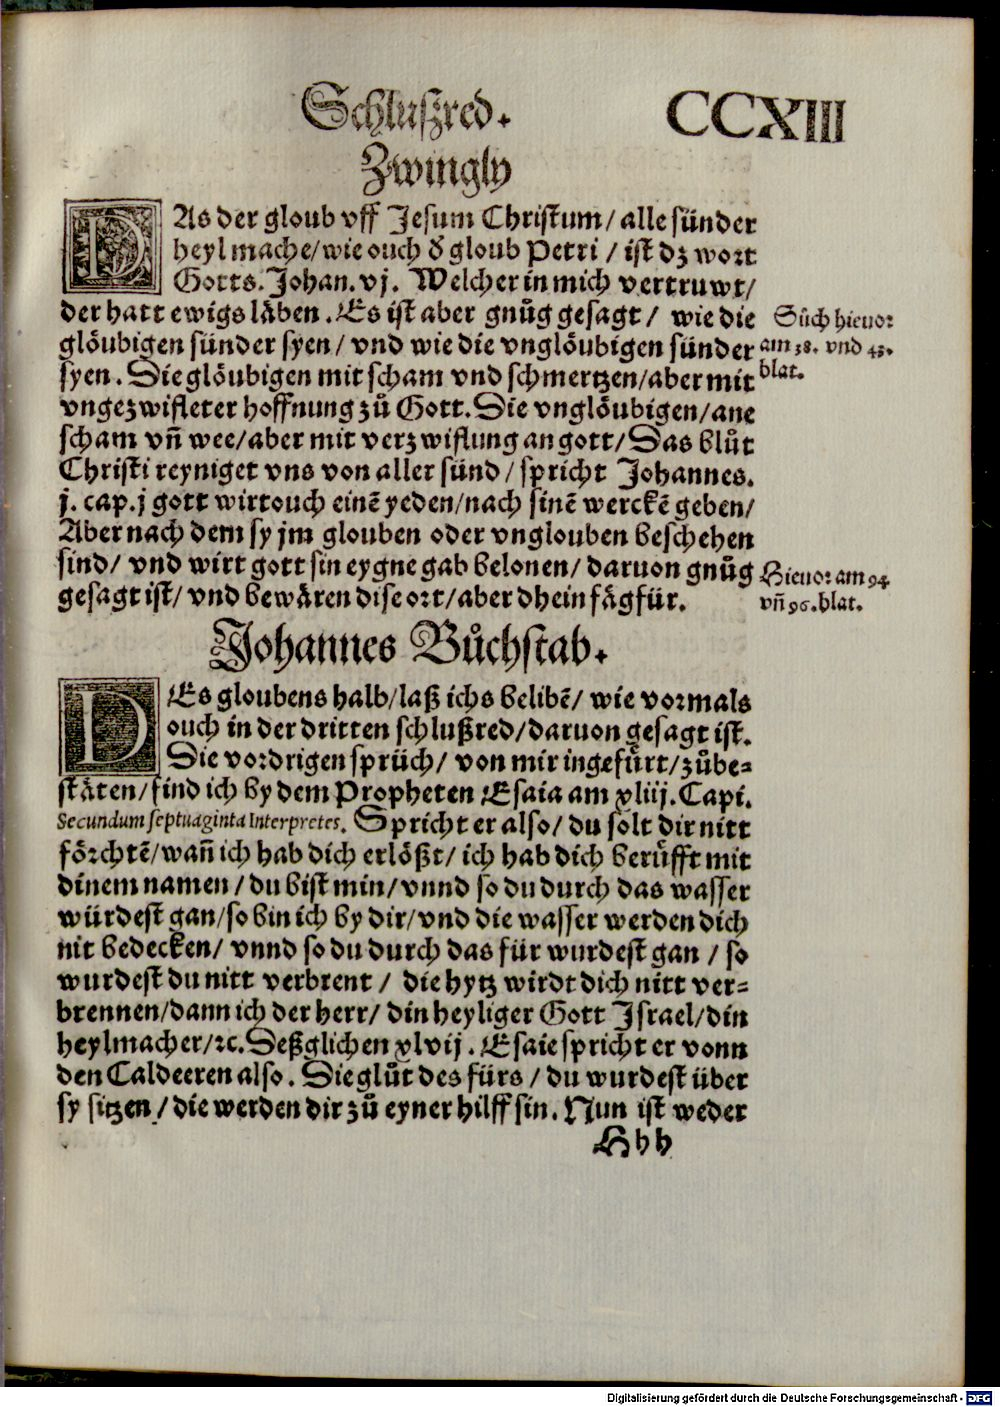 Schluſzred.
CCXIII
Zwingly
DAs der gloub vff Jeſum Chriſtum/ alle ſünder
heyl mache/ wie ouch d̕ gloub Petri / iſt dz wort
Gotts. Johan. vj. Welcher in mich vertruwt/
der hatt ewigs läben. Es iſt aber gnůg geſagt/ wie die
glöubigen ſünder ſyen/ vnd wie die vnglöubigen ſünder
ſyen. Die glöubigen mit ſcham vnd ſchmertzen/ aber mit
vngezwifleter hoffnung zů Gott. Die vnglöubigen/ ane
ſcham vñ wee/ aber mit verzwiflung an gott/ Das blůt
Chriſti reyniget vns von aller ſünd/ ſpricht Johannes.
j. cap. j gott wirt ouch einẽ yeden/ nach ſinẽ werckẽ geben/
Aber nach dem ſy jm glouben oder vnglouben beſchehen
ſind/ vnd wirt gott ſin eygne gab belonen/ daruon gnůg
geſagt iſt/ vnd bewären diſe ort/ aber dhein fägfür.
Sůch hieuor
am 38. vnd 43.
blat.
Hieuor am 94
vñ 96. blat.
Johannes Bůchſtab.
DEs gloubens halb/ laß ichs belibẽ/ wie vormals
ouch in der dritten ſchlußred/ daruon geſagt iſt.
Die vordrigen ſprüch/ von mir ingefürt/ zůbe⸗
ſtäten/ find ich by dem Propheten Eſaia am xliij. Capi.
Secundum ſeptuaginta Interpretes. Spricht er alſo/ du ſolt dir nitt
förchtẽ/ wañ ich hab dich erlößt/ ich hab dich berüfft mit
dinem namen/ du biſt min/ vnnd ſo du durch das waſſer
würdeſt gan/ ſo bin ich by dir/ vnd die waſſer werden dich
nit bedecken/ vnnd ſo du durch das für wurdeſt gan / ſo
wurdeſt du nitt verbrent / die hytz wirdt dich nitt ver⸗
brennen/ dann ich der herr/ din heyliger Gott Jſrael/ din
heylmacher/ ꝛc. Deßglichen xlvij. Eſaie ſpricht er vonn
den Caldeeren alſo. Die glůt des fürs / du wurdeſt über
ſy ſitzen/ die werden dir zů eyner hilff ſin. Nun iſt weder
Hhh
Digitalisierung gefördert durch die Deutsche Forschungsgemeinschaft - DFG